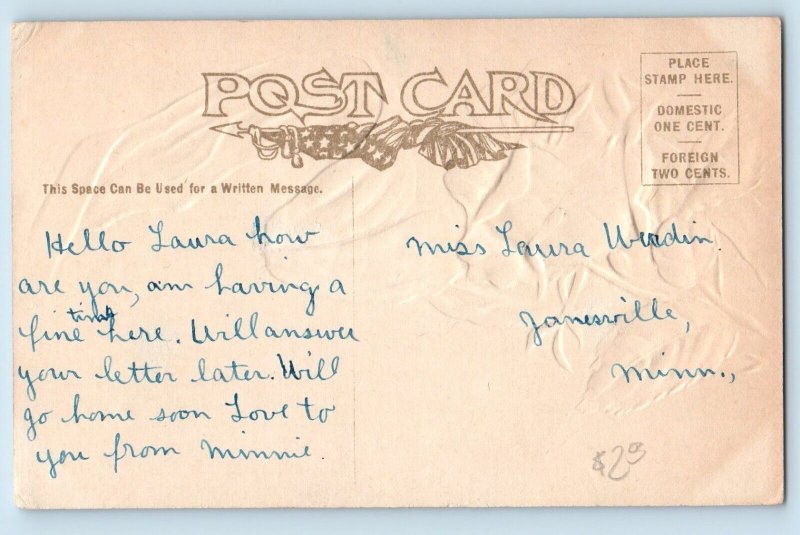 POST CARD
PLACE
STAMP HERE.
DOMESTIC
ONE CENT.
FOREIGN
TWO CENTS.
This Space Can Be Used for a Written Message.
Hello Laura how
are you, am having a
fine time here. Will answer
your letter later. Will
go home soon Love to
you from Minnie.
Miss Laura
Janesville,
Minn.,
$2.00